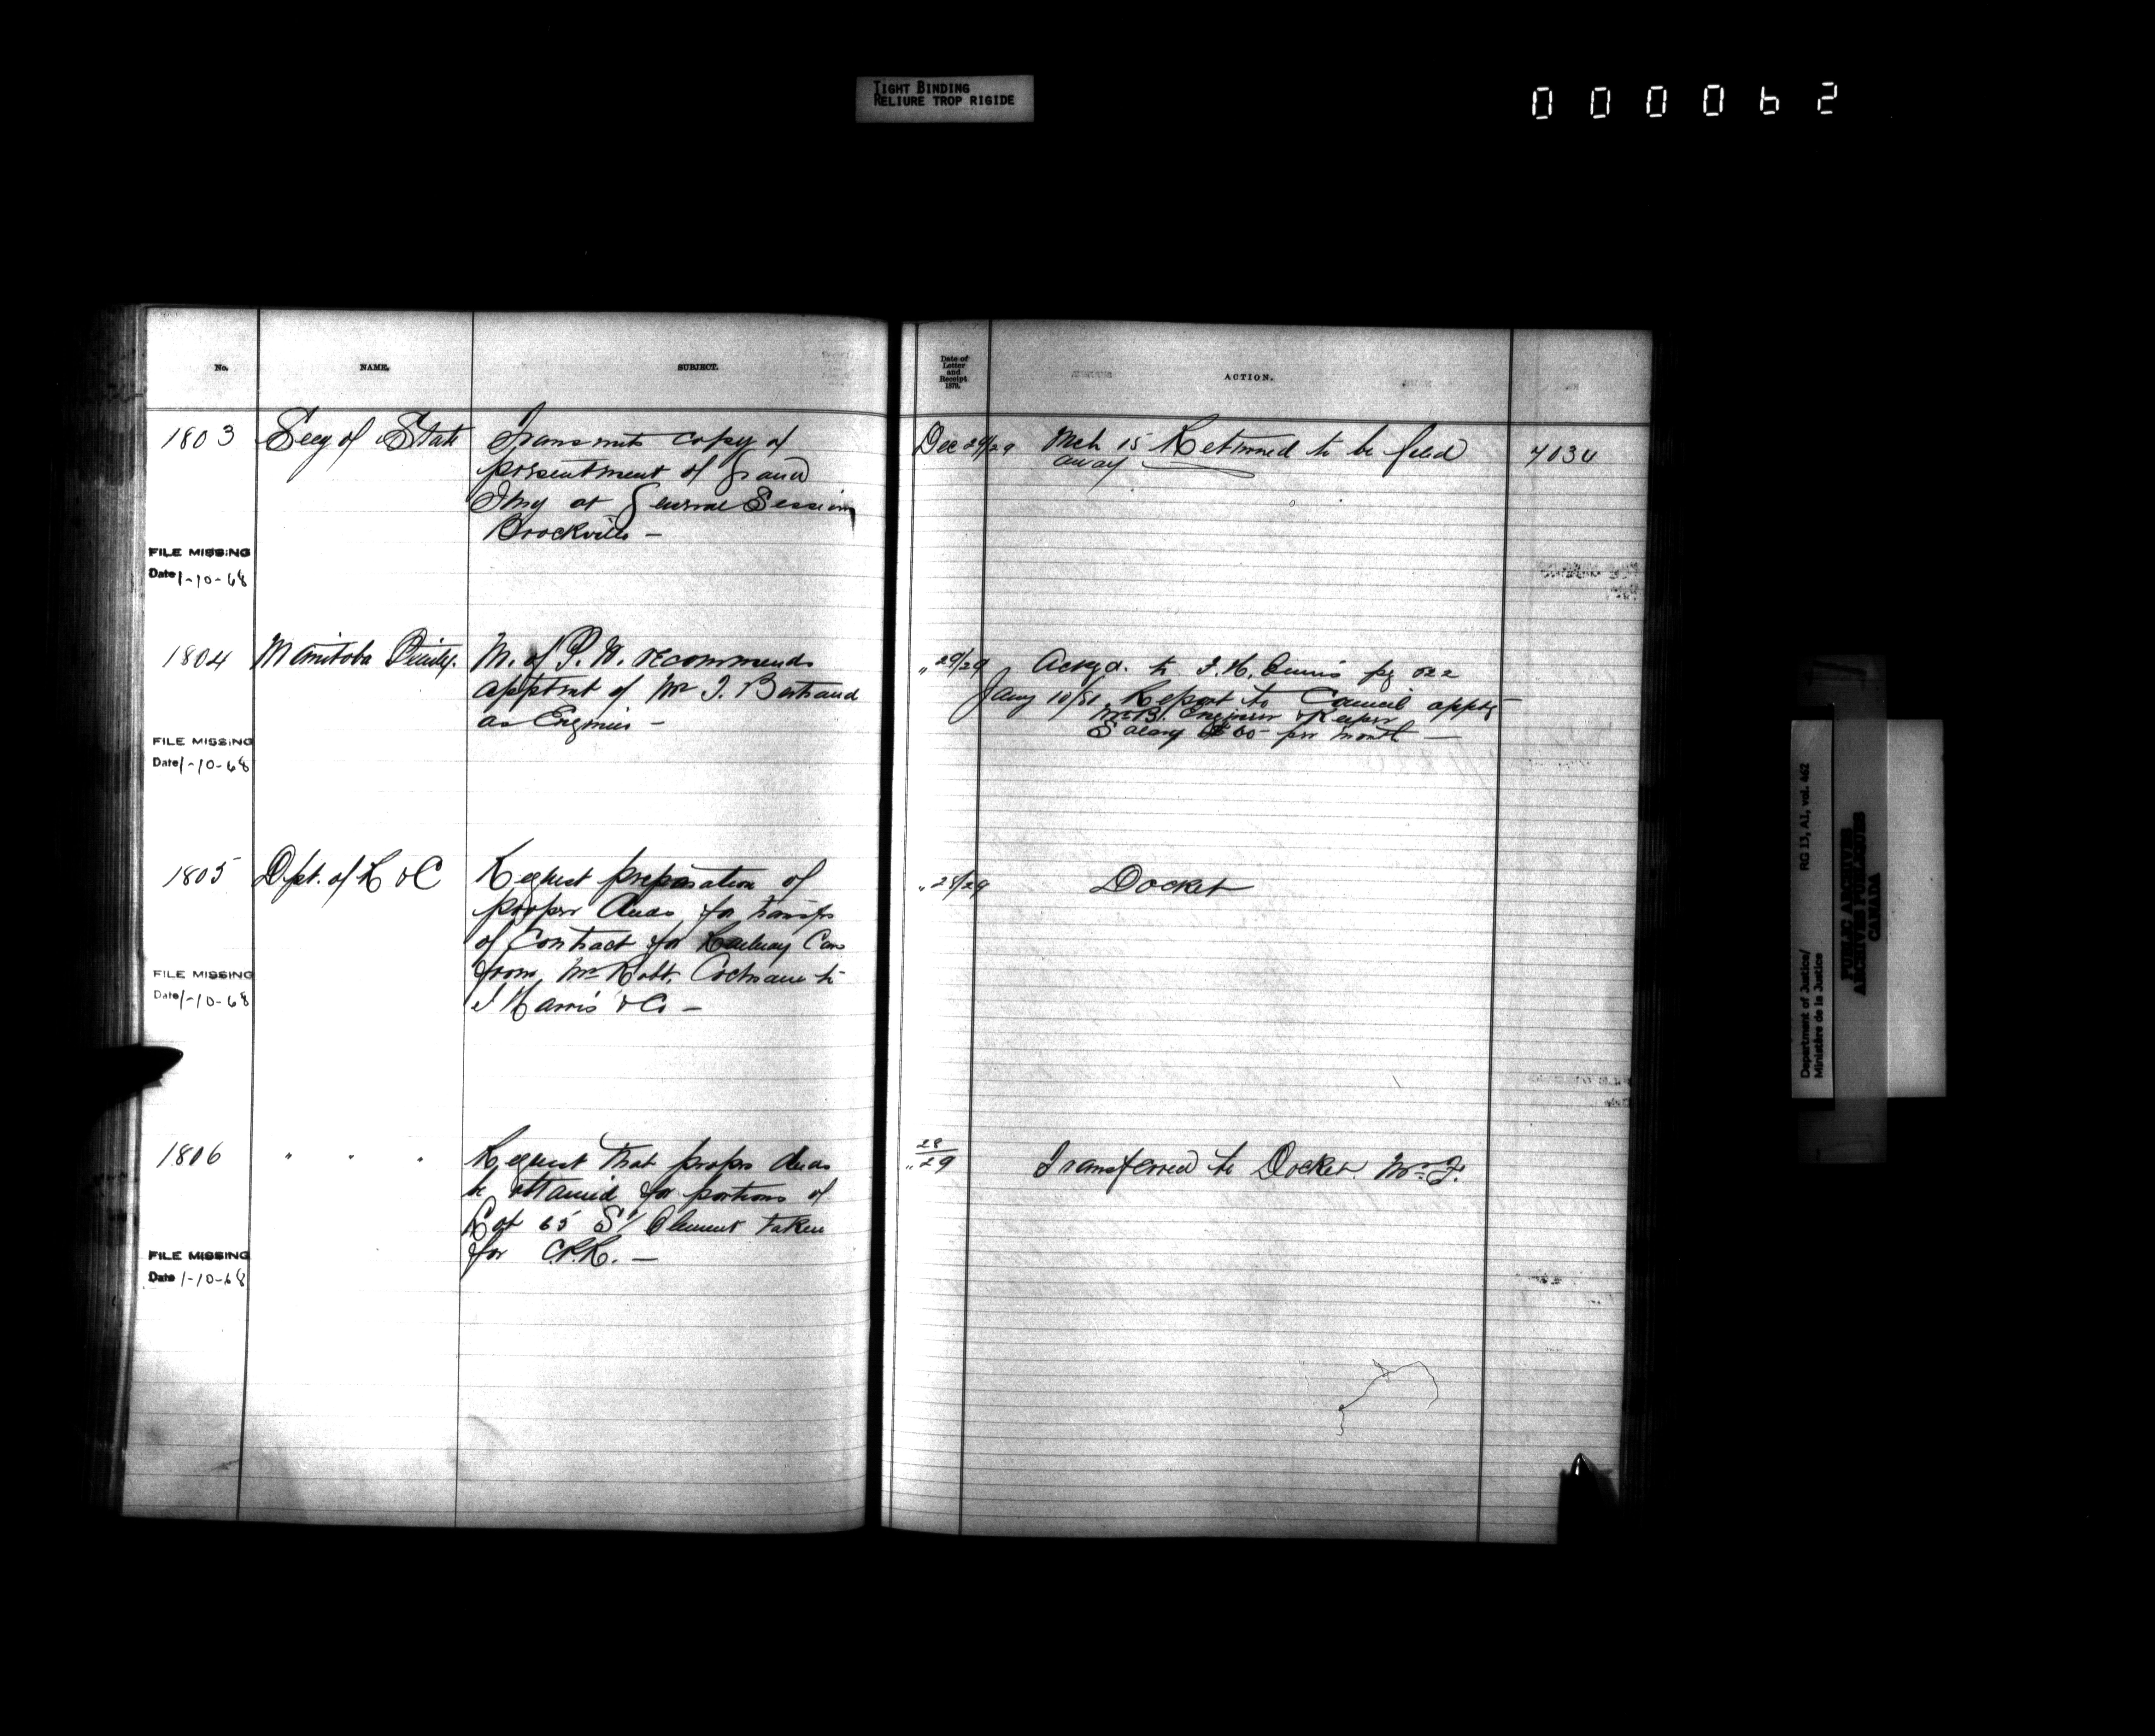 TIGHT BINDING
RELIURE TROP RIGIDE
000062
No.
NAME.
SUBJECT.
Date of
Letter
and
Receipt
1879.
ACTION.
1803
Secy of State
Transmits copy of
presentment of Grand
Jury at General Session
Brockville —
Dec 29/29
Mch 15 Returned to be filed
away
FILE MISSING
Date 1-10-68
1804
Manitoba Penity.
M. of P. W. recommends
apptmt of Mr J. Bertrand
as Engineer —
" 29/29
Ackgd. to J. H. Ennis pg 522
Jany 10/81 Report to Council apptg
Mr B. Engineer & Keeper
Salary $60 per month —
FILE MISSING
Date 1-10-68
1805
Dpt. of R & C
Request preparation of
proper deeds for transfer
of Contract for Railway Cars
from Mr Robt. Cochrane to
J Harris & Co —
" 28/29
Docket
FILE MISSING
Date 1-10-68
1806
" " "
Request that proper deeds
be obtained for portions of
Lot 65 St Clement taken
for C.P.R. —
" 28/29
Transferred to Docket. Mr F.
FILE MISSING
Date 1-10-68
Department of Justice/ RG 13, A1, vol. 462
Ministère de la Justice
PUBLIC ARCHIVES
ARCHIVES PUBLIQUES
CANADA